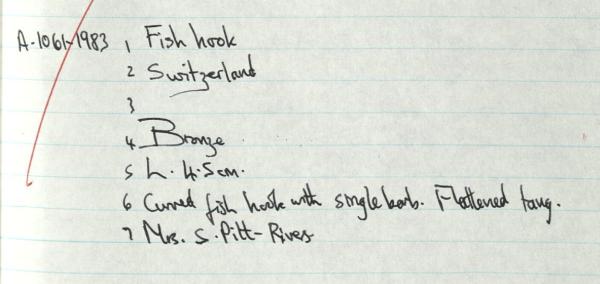 A.1061-1983 1 Fish hook
2 Switzerland
3
4 Bronze
5 L. 4.5cm.
6 Curved fish hook with single barb. Flattened tang.
7 Mrs. S. Pitt-Rivers